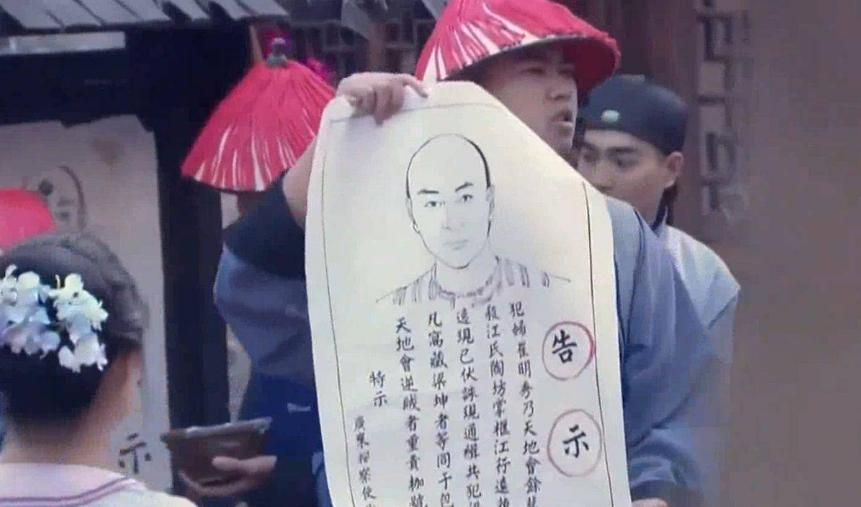 告示
犯婦崔明秀乃天地會餘
江氏陶坊掌櫃江行遠
遠現已伏誅現通緝共犯
凡窩藏梁坤者等同于包
天地會逆賊者重責枷號
特示
廣東按察使
示